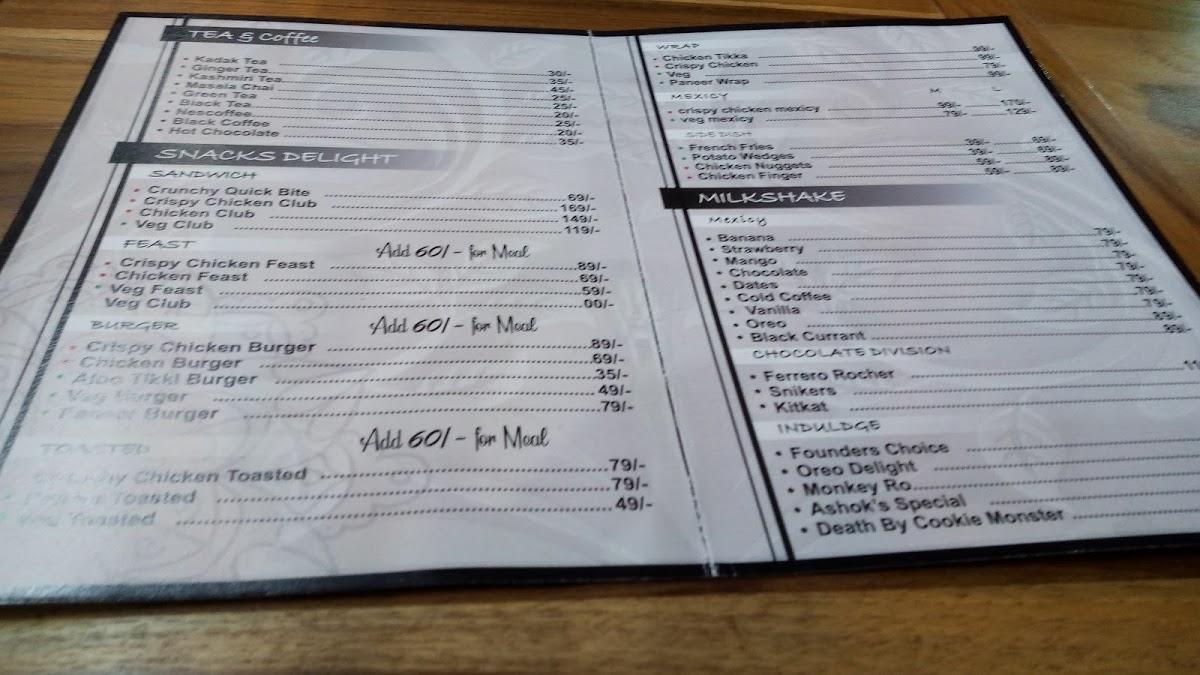 TEA & Coffee
• Kadak Tea 30/-
• Ginger Tea 35/-
• Kashmiri Tea 45/-
• Masala Chai 25/-
• Green Tea 25/-
• Black Tea 20/-
• Nescoffee 25/-
• Black Coffee 20/-
• Hot Chocolate 35/-
SNACKS DELIGHT
SANDWICH
• Crunchy Quick Bite 69/-
• Crispy Chicken Club 169/-
• Chicken Club 149/-
• Veg Club 119/-
FEAST Add 60/- for Meal
• Crispy Chicken Feast 89/-
• Chicken Feast 69/-
• Veg Feast 59/-
Veg Club 00/-
BURGER Add 60/- for Meal
• Crispy Chicken Burger 89/-
• Chicken Burger 69/-
• Aloo Tikki Burger 35/-
• Veg Burger 49/-
• Paneer Burger 79/-
TOASTED Add 60/- for Meal
Chicken Toasted 79/-
• Toasted 79/-
• Veg Toasted 49/-
WRAP
• Chicken Tikka 99/-
• Crispy Chicken 99/-
• Veg 79/-
• Paneer Wrap 99/-
MEXICY M L
• crispy chicken mexicy 99/- 170/-
• veg mexicy 79/- 129/-
SIDE DISH
• French Fries 39/- 69/-
• Potato Wedges 39/- 69/-
• Chicken Nuggets 59/- 89/-
• Chicken Finger 59/- 89/-
MILKSHAKE
Mexicy
• Banana 79/-
• Strawberry 79/-
• Mango 79/-
• Chocolate 79/-
• Dates 79/-
• Cold Coffee 79/-
• Vanilla 79/-
• Oreo 89/-
• Black Currant 89/-
CHOCOLATE DIVISION
• Ferrero Rocher 11
• Snikers
• Kitkat
INDULDGE
• Founders Choice
• Oreo Delight
• Monkey Ro
• Ashok's Special
• Death By Cookie Monster